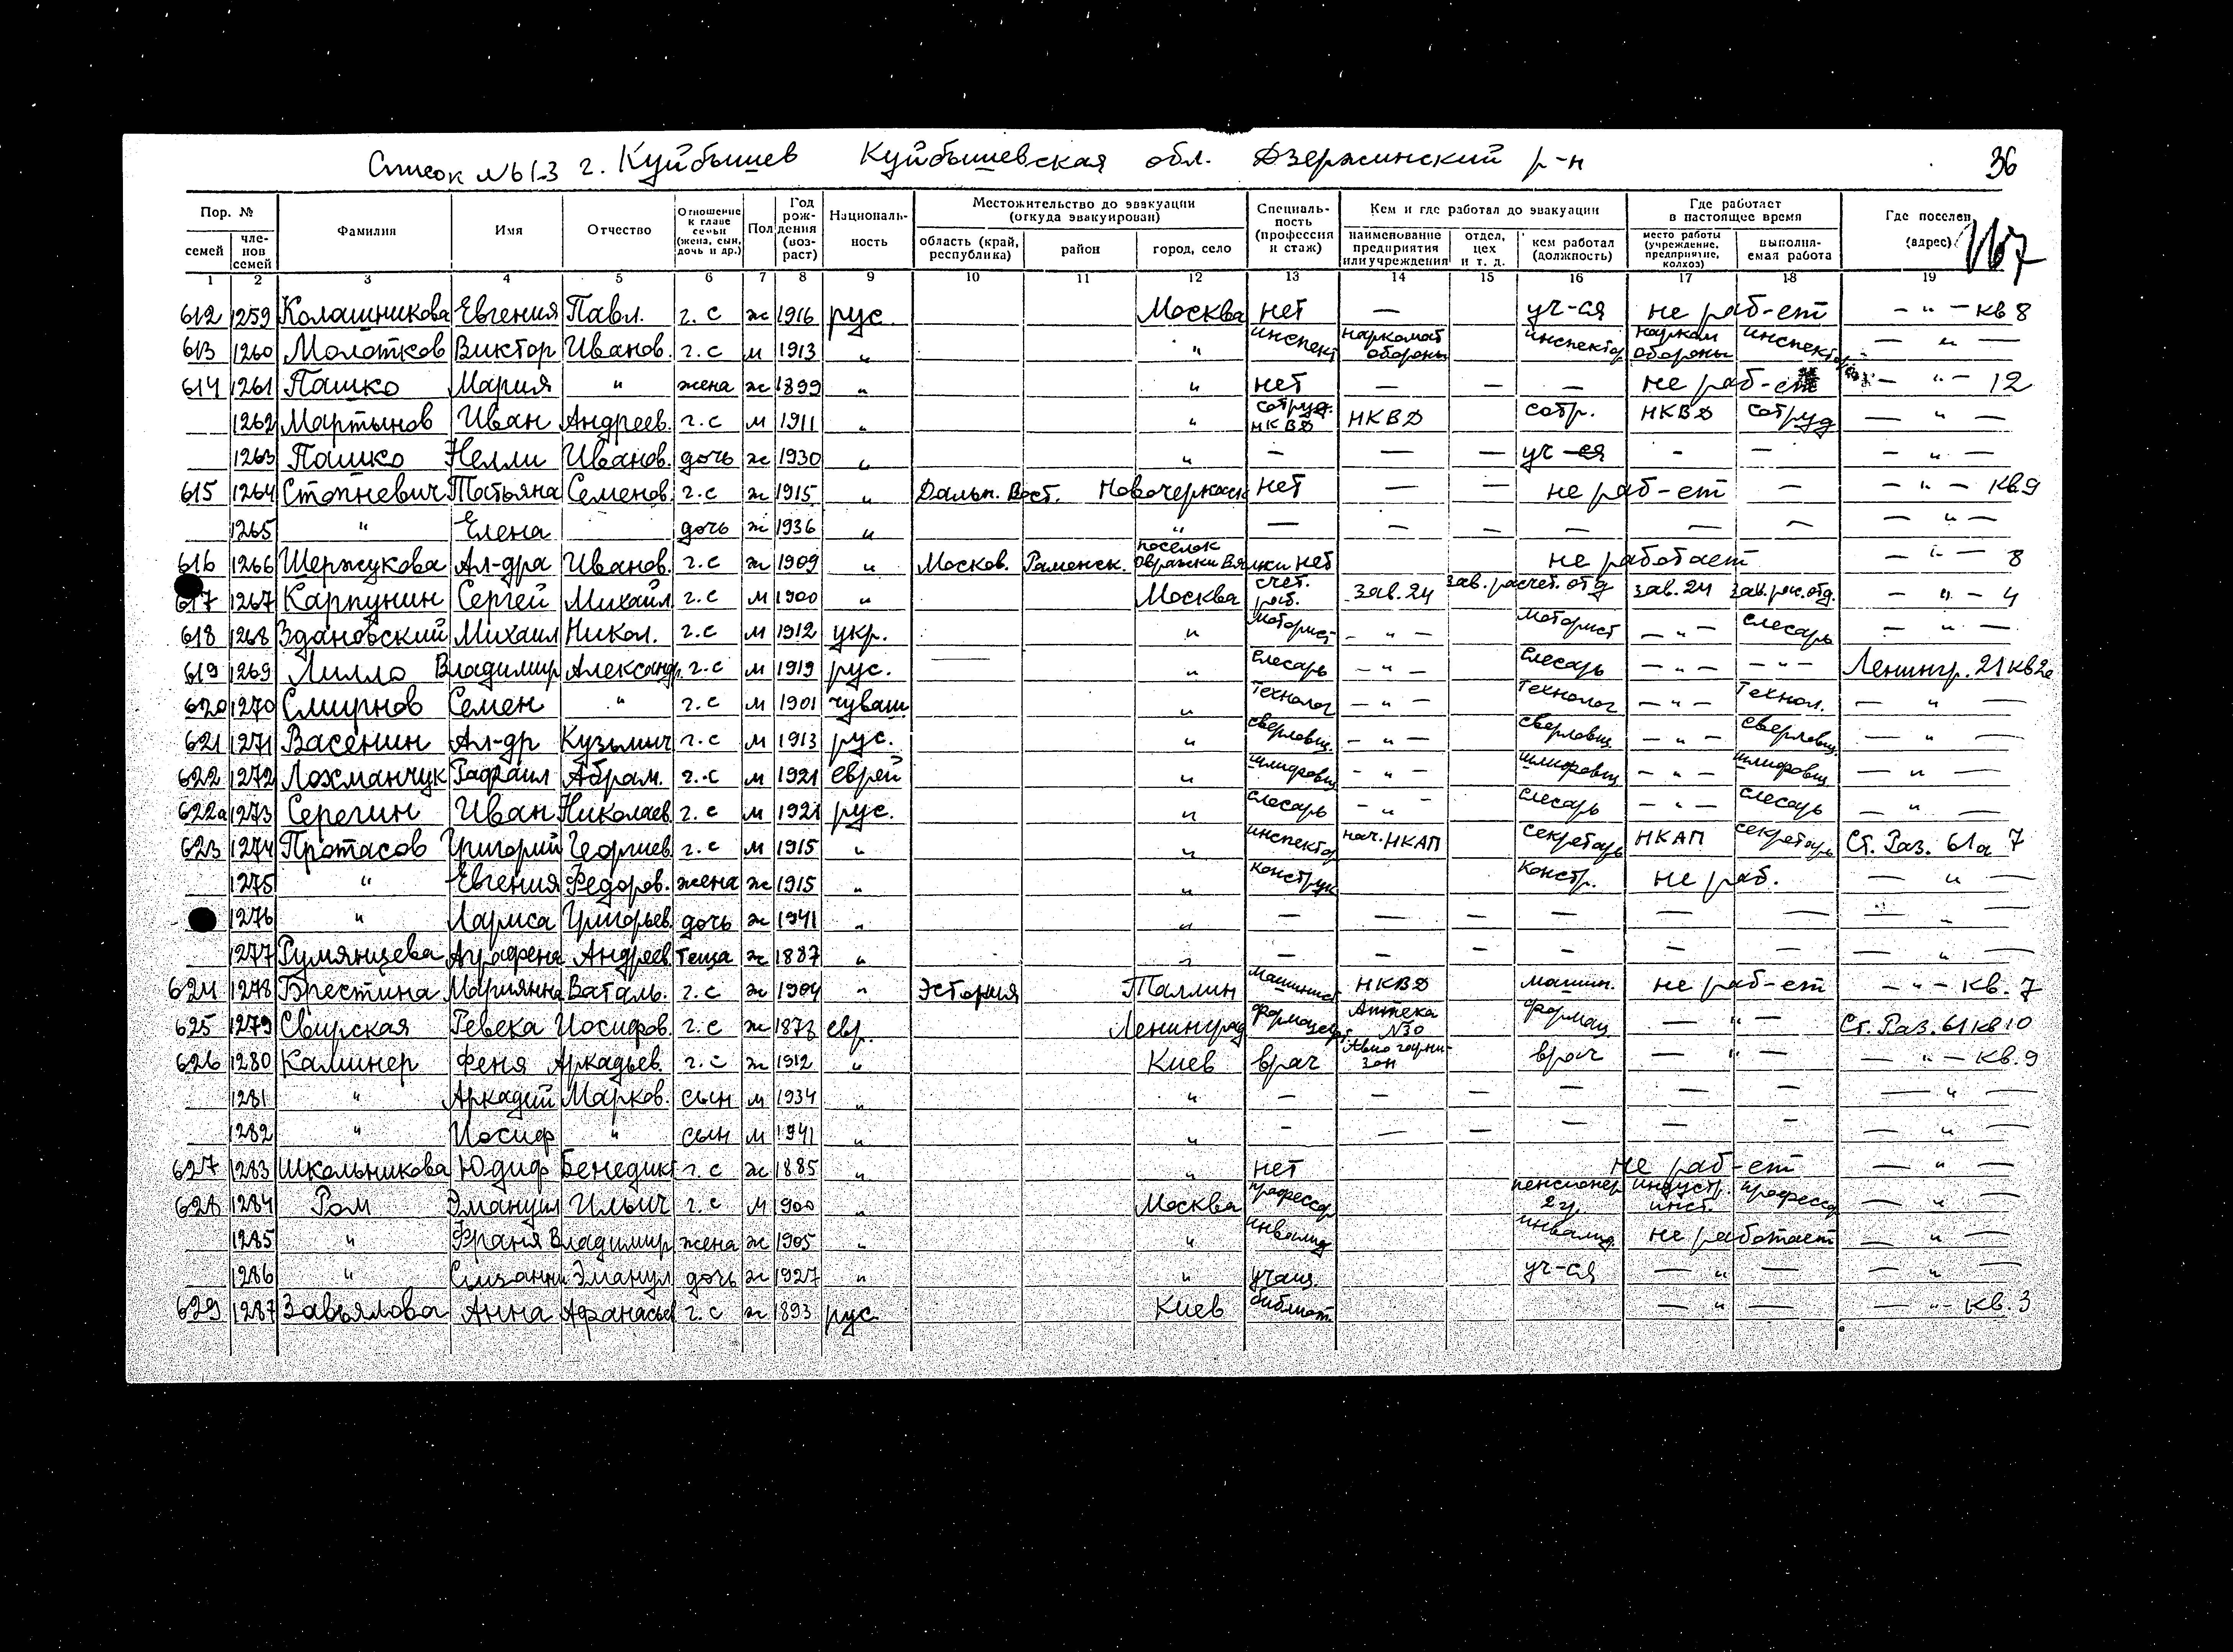 Список № 61-3 г. Куйбышев Куйбышевская обл. Дзержинский р-н 36
167
Пор. № Фамилия Имя Отчество Отношение к главе семьи (жена, сын, дочь и др.) Пол Год рождения (возраст) Национальность Местожительство до эвакуации (откуда эвакуирован) Специальность (профессия и стаж) Кем и где работал до эвакуации Где работает в настоящее время Где поселен (адрес)
семей членов семей область (край, республика) район город, село наименование предприятия или учреждения отдел, цех и т. д. кем работал (должность) место работы (учреждение, предприятие, колхоз) выполняемая работа
1 2 3 4 5 6 7 8 9 10 11 12 13 14 15 16 17 18 19
612 1259 Колашникова Евгения Павл. г. с ж 1916 рус. Москва нет — уч-ся не раб-ет — " — кв 8
613 1260 Молотков Виктор Иванов. г. с м 1913 " " инспект наркомат обороны инспектор наркам обороны инспектор — " —
614 1261 Пашко Мария " жена ж 1899 " " нет — — — не раб-ет — " — 12
1262 Мартынов Иван Андреев. г. с м 1911 " " сотруд. НКВД НКВД сотр. НКВД сотруд — " —
1263 Пашко Нелли Иванов. дочь ж 1930 " " — — — уч-ся - — — " —
615 1264 Татьяна Семенов. г. с ж 1915 " Дальн. Вост. нет — — не раб-ет — — " — кв. 9
1265 " Елена дочь ж 1936 " " — — — — — — — " —
616 1266 Шержукова Ал-дра Иванов. г. с ж 1909 " Москов. Раменск. поселок нет не работает — " — 8
617 1267 Карпунин Сергей Михайл. г. с м 1900 " Москва счет. раб. зав. 24 зав. расчет. отд зав. 24 зав. рас. отд. — " — 4
618 1268 Здановский Михаил Никол. г. с м 1912 укр. " моторист — " — моторист — " — слесарь — " —
619 1269 Лилло Владимир Александр. г. с м 1919 рус. " слесарь — " — слесарь — " — — " — Ленингр. 21 кв 2а
620 1270 Смирнов Семен " г. с м 1901 чуваш. " технолог — " — технолог — " — технол. — " —
621 1271 Васенин Ал-др Кузьмич г. с м 1913 рус. " сверловщ. — " — сверловщ. — " — сверловщ. — " —
622 1272 Лохманчук Рафаил Абрам. г. с м 1921 еврей " шлифовщ — " — шлифовщ — " — шлифовщ — " —
622а 1273 Серегин Иван Николаев. г. с м 1921 рус. " слесарь — " — слесарь — " — слесарь — " —
623 1274 Протасов Григорий Георгиев. г. с м 1915 " " инспектор нач. НКАП секретарь НКАП секретарь Ст. Раз. 61а 7
1275 " Евгения Федоров. жена ж 1915 " " конструк констр. не раб. — " —
1276 " Лариса Григорьев. дочь ж 1941 " " — — — — — — — " —
1277 Румянцева Аграфена Андреев. теща ж 1887 " " — — — — — — — " —
624 1278 Брестина Марианна г. с ж 1904 " Эстония Таллин машинист НКВД машин. не раб-ет — " — кв. 7
625 1279 Свирская Ревека Иосифов. г. с ж 1878 евр. Ленинград фармацевт Аптека № 30 фармац — " — Ст. Раз. 61 кв 10
626 1280 Каминер Феня Аркадьев. г. с ж 1912 " Киев врач Авиа гарнизон врач — " — — " — кв. 9
1281 " Аркадий Марков. сын м 1934 " " — — — — — — — " —
1282 " Иосиф " сын м 1941 " " — — — — — — — " —
627 1283 Школьникова Юдиф Бенедикт г. с ж 1885 " " нет не раб-ет — " —
628 1284 Ром Эмануил Ильич г. с м 1900 " Москва профессор пенсионер 2 г. индустр. инст. професс — " —
1285 " Франя Владимир жена ж 1905 " " инвалид инвалид. не работает — " —
1286 " Эмануил дочь ж 1927 " " учащ. уч-ся — " — — " —
629 1287 Завьялова Анна Афанасьев г. с ж 1893 рус. Киев библиот. — " — — " — кв. 3